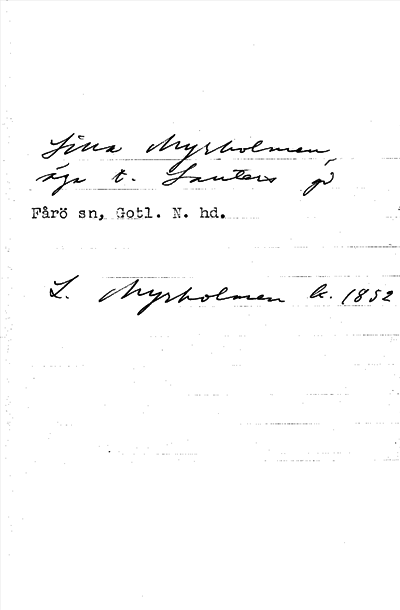 Lilla Myrholmen,
äga t. Lauters gd
Fårö sn, Gotl. N. hd.
L. Myrholmen k. 1852